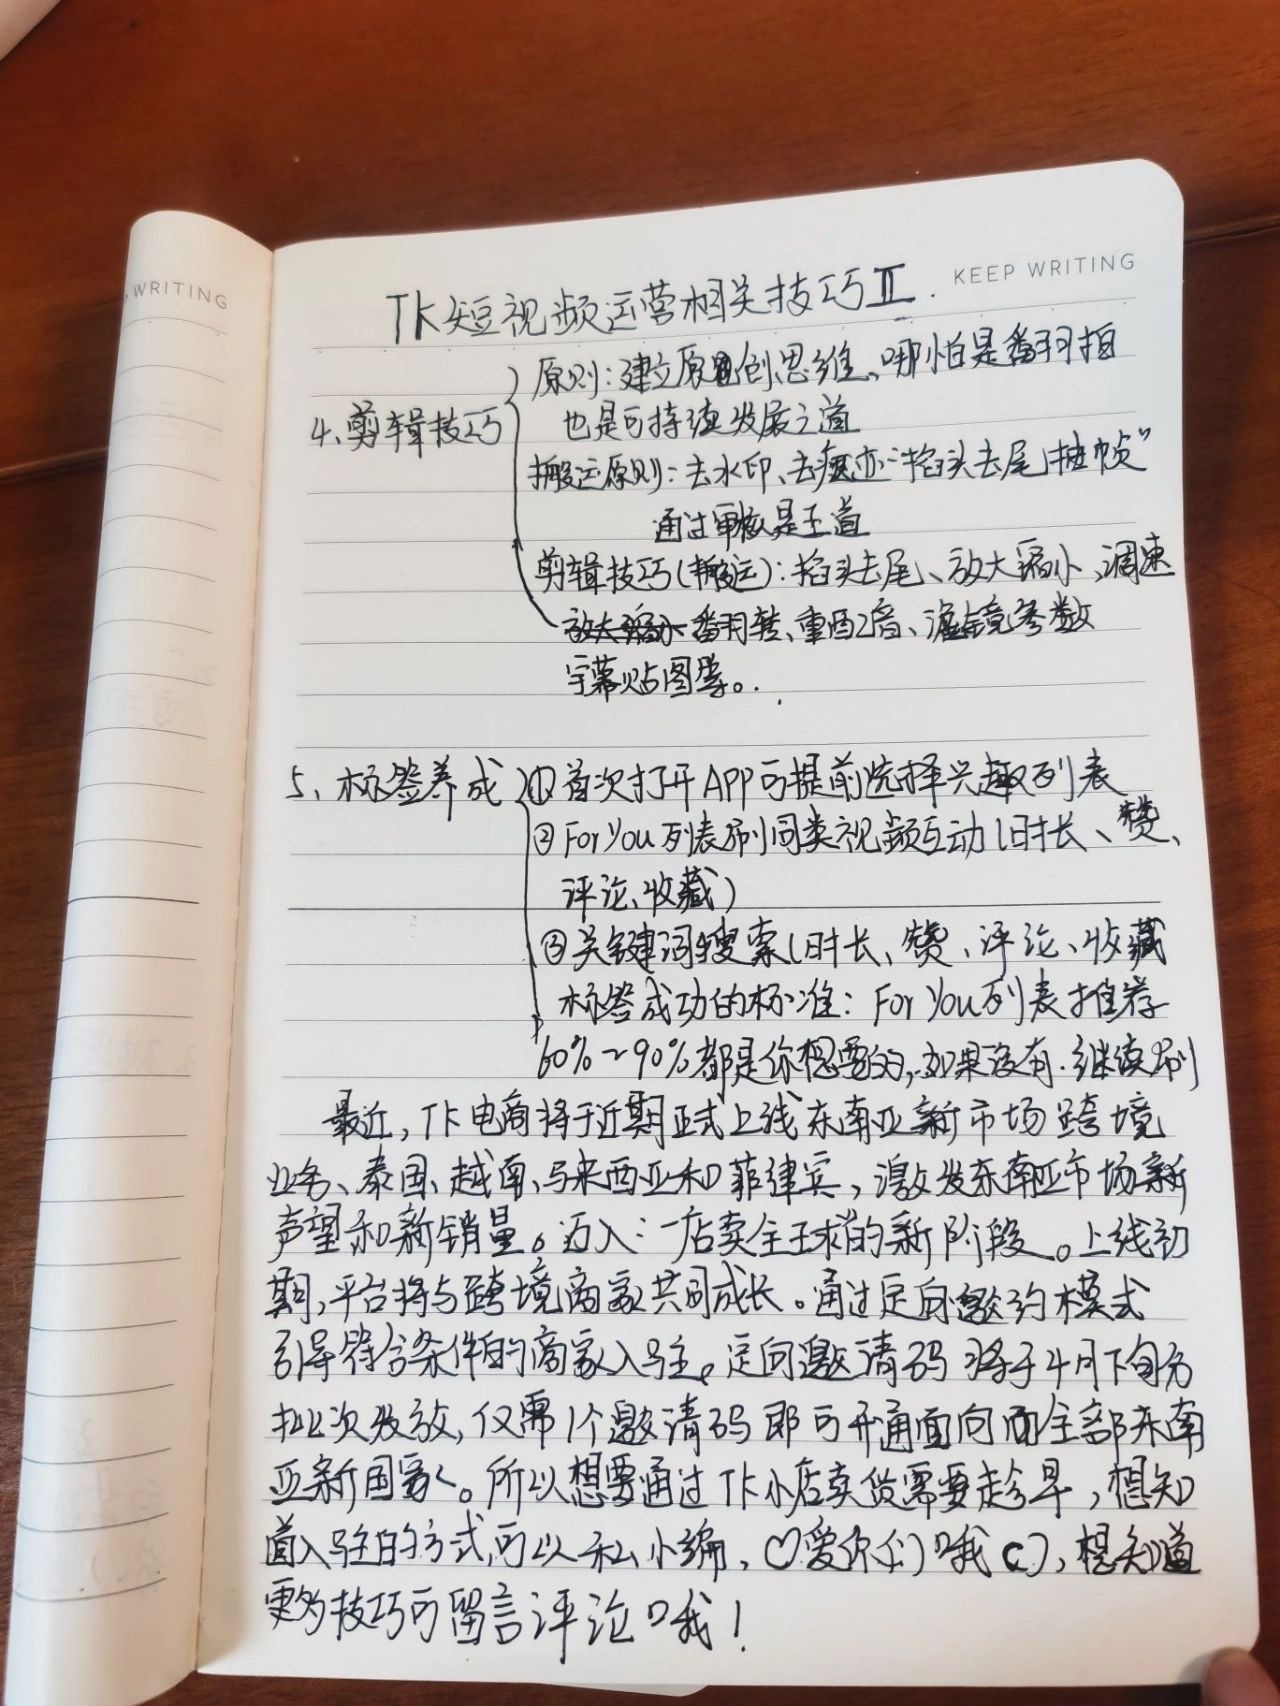 WRITING
KEEP WRITING
TK短视频运营相关技巧Ⅱ.
4、剪辑技巧
原则：建立原创思维、哪怕是翻拍
也是可持续发展之道
搬运原则：去水印、去痕迹“掐头去尾抽帧”
通过审核是王道
剪辑技巧(搬运)：掐头去尾、放大缩小、调速
翻转、重配音、滤镜参数
字幕贴图等。
5、标签养成
①首次打开APP可提前选择兴趣列表
②For You列表刷同类视频互动(时长、赞、
评论、收藏)
③关键词搜索(时长、赞、评论、收藏
标签成功的标准：For You列表推荐
60%~90%都是你想要的，如果没有.继续刷
最近，TK电商将于近期正式上线东南亚新市场跨境
业务、泰国、越南、马来西亚和菲律宾，激发东南亚市场新
声望和新销量。迈入“一店卖全球”的新阶段。上线初
期，平台将与跨境商家共同成长。通过定向邀约模式
引导符合条件的商家入驻。定向邀请码将于4月下旬分
批次发放，仅需1个邀请码即可开通面向面全部东南
亚新国家。所以想要通过TK小店卖货需要趁早，想知
道入驻的方式，可以私小编，♡爱你们哦，想知道
更多技巧可留言评论哦！